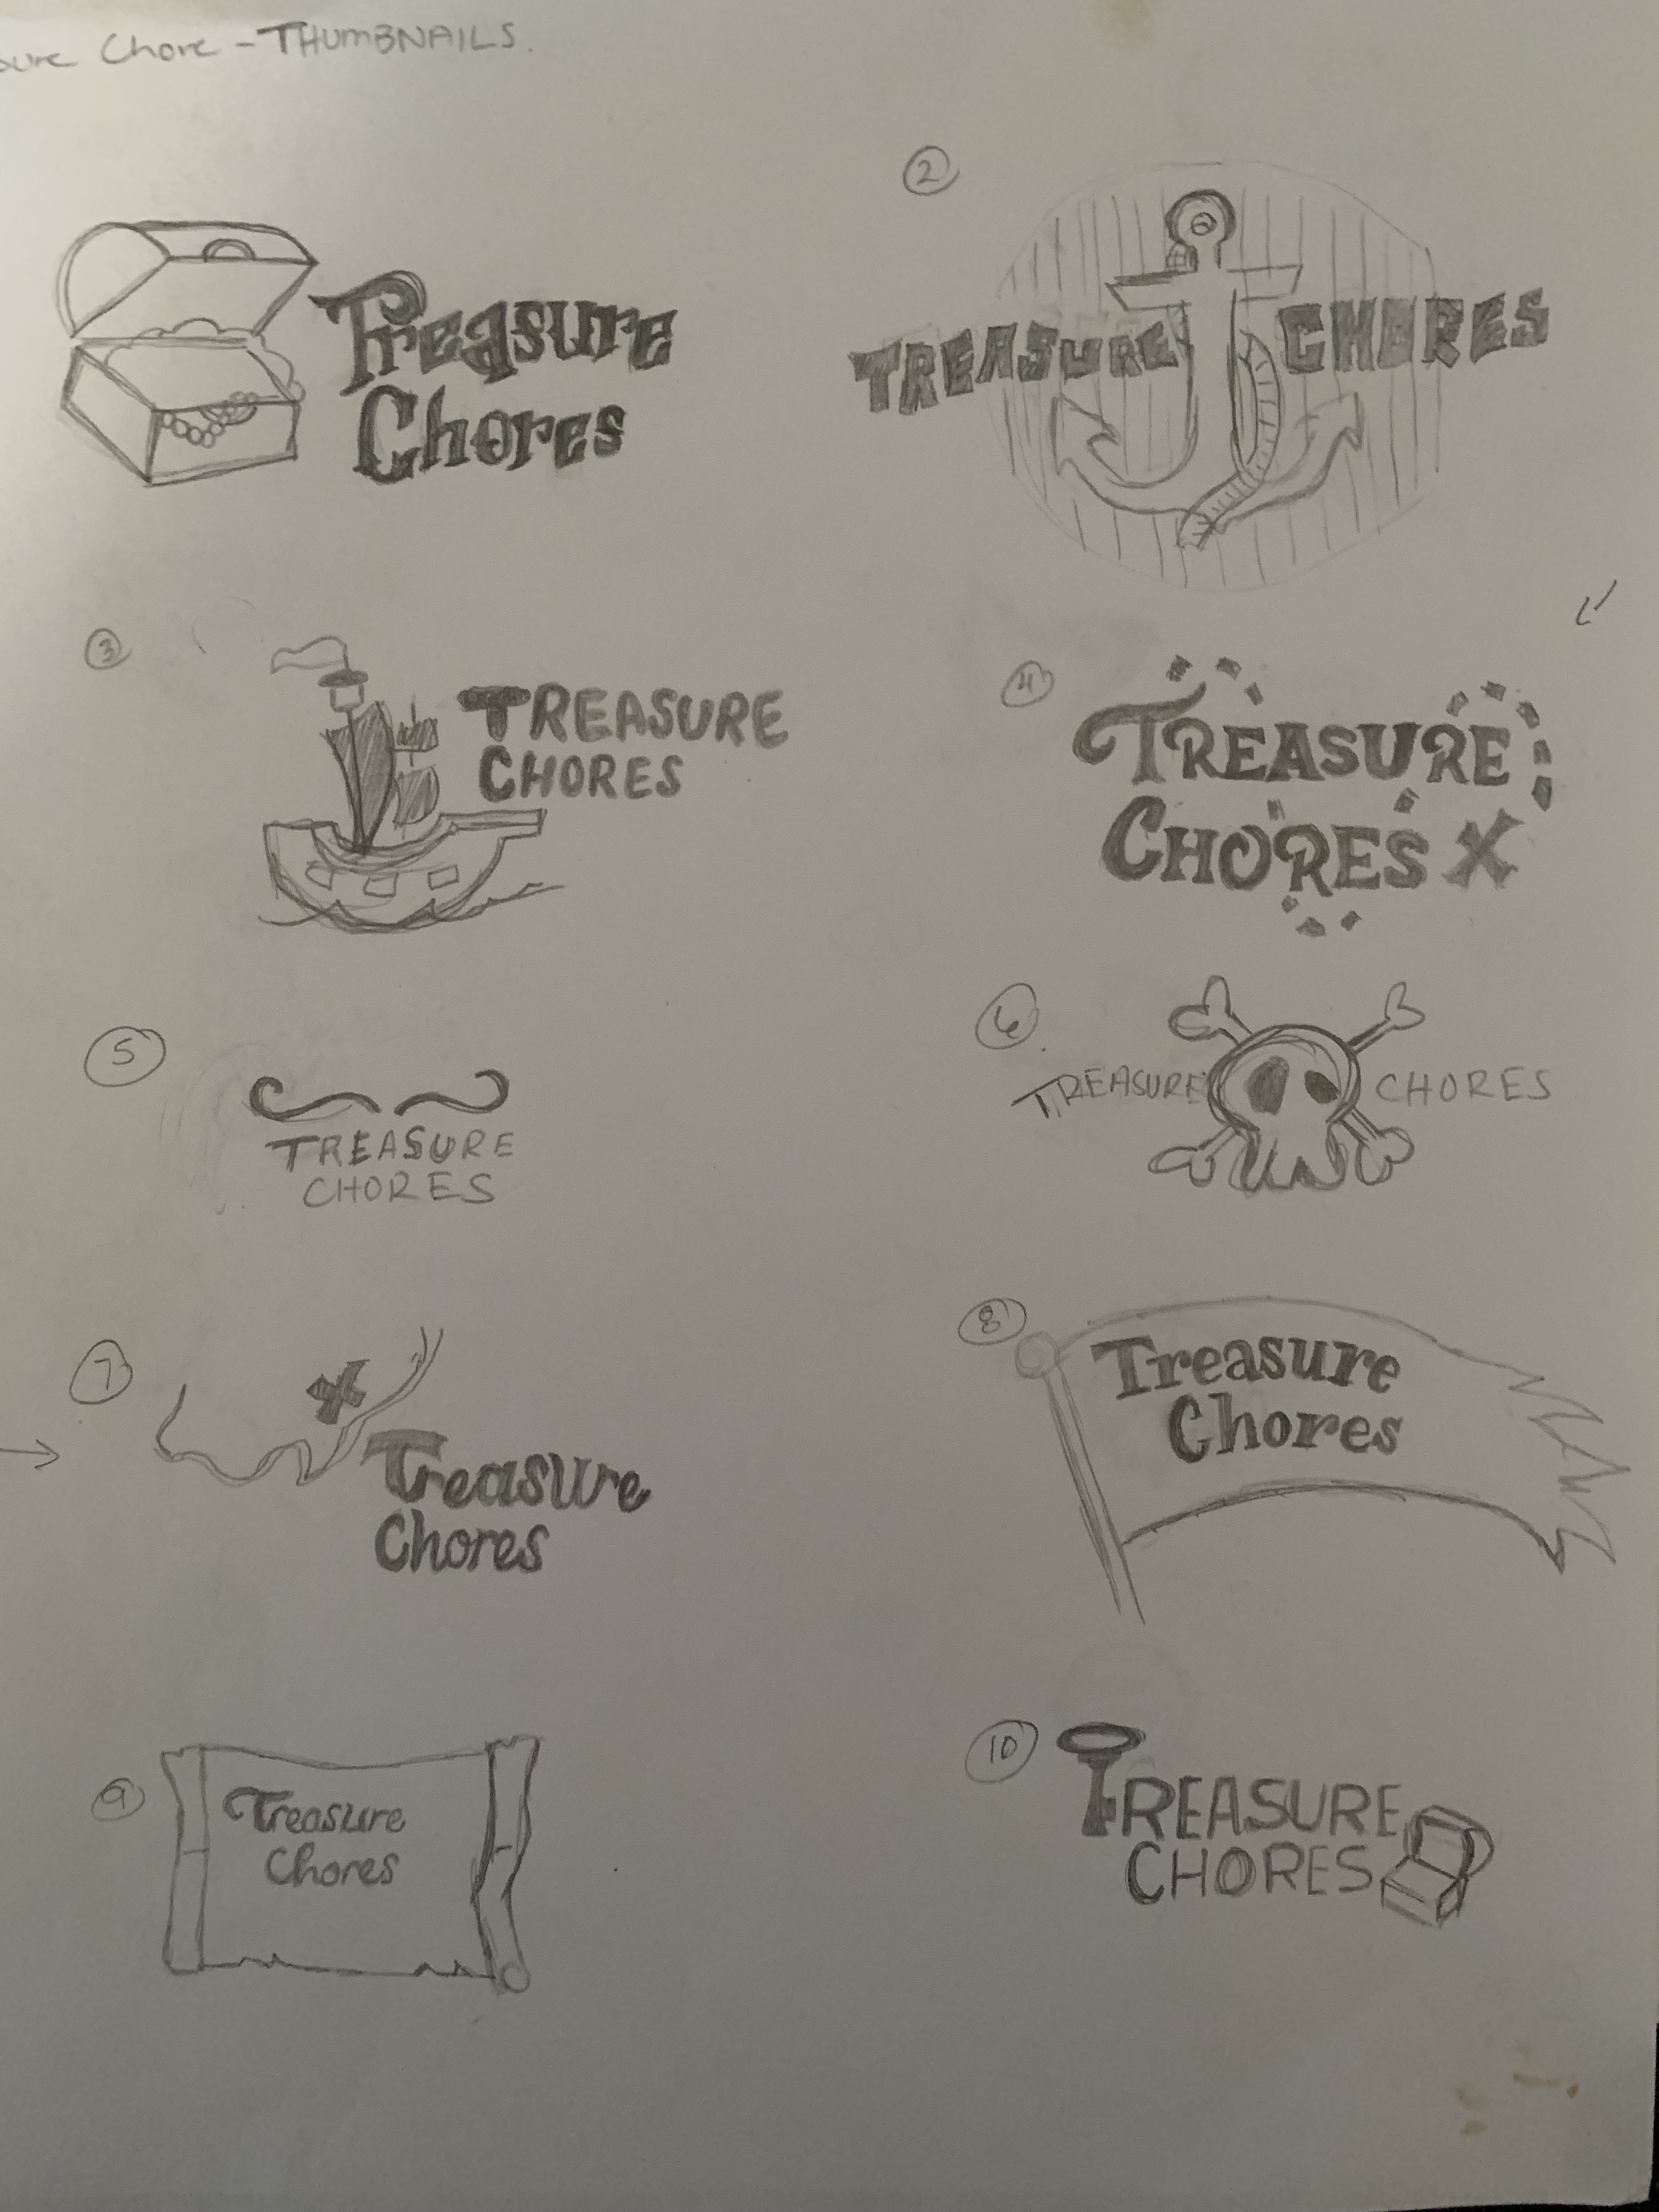 Chore - THUMBNAILS.
Treasure
Chores
2
TREASURE CHORES
3
TREASURE
CHORES
4
TREASURE
CHORES X
5
TREASURE
CHORES
6
TREASURE CHORES
7
X
Treasure
Chores
8
Treasure
Chores
9
Treasure
Chores
10
TREASURE
CHORES